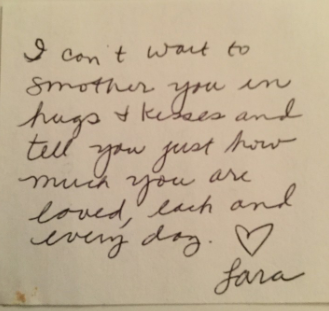 I can't wait to
smother you in
hugs & kisses and
tell you just how
much you are
loved, each and
every day. ♡
Sara